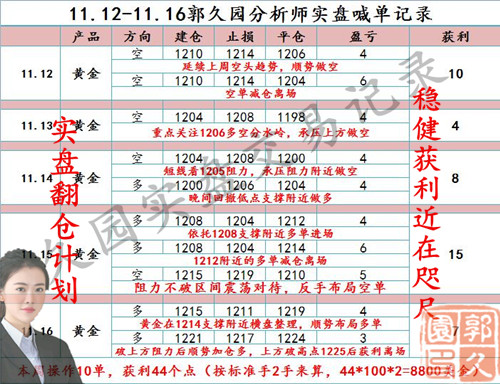 11.12-11.16郭久园分析师实盘喊单记录
产品 方向 建仓 止损 平仓 盈亏 获利
11.12 黄金 空 1210 1214 1206 4 10
延续上周空头趋势，顺势做空
空 1210 1214 1204 6
空单减仓离场
11.13 黄金 空 1204 1208 1198 4 4
重点关注1206多空分水岭，承压上方做空
11.14 黄金 空 1204 1208 1200 4 8
短线看1205阻力，承压阻力附近做空
多 1200 1206 1204 4
晚间回撤低点支撑附近做多
11.15 黄金 多 1208 1204 1212 4 15
依托1208支撑附近多单进场
多 1208 1204 1214 6
1212附近的多单减仓离场
空 1215 1219 1210 5
阻力不破区间震荡对待，反手布局空单
11.16 黄金 多 1215 1211 1219 4 7
黄金在1214支撑附近横盘整理，顺势布局多单
多 1221 1217 1224 3
破上方阻力后顺势加仓多，上方破高点1225后获利离场
本周操作10单，获利44个点（按标准手2手来算，44*100*2=8800美金）
实盘翻仓计划
稳健获利近在咫尺
久园实盘交易记录
郭久园